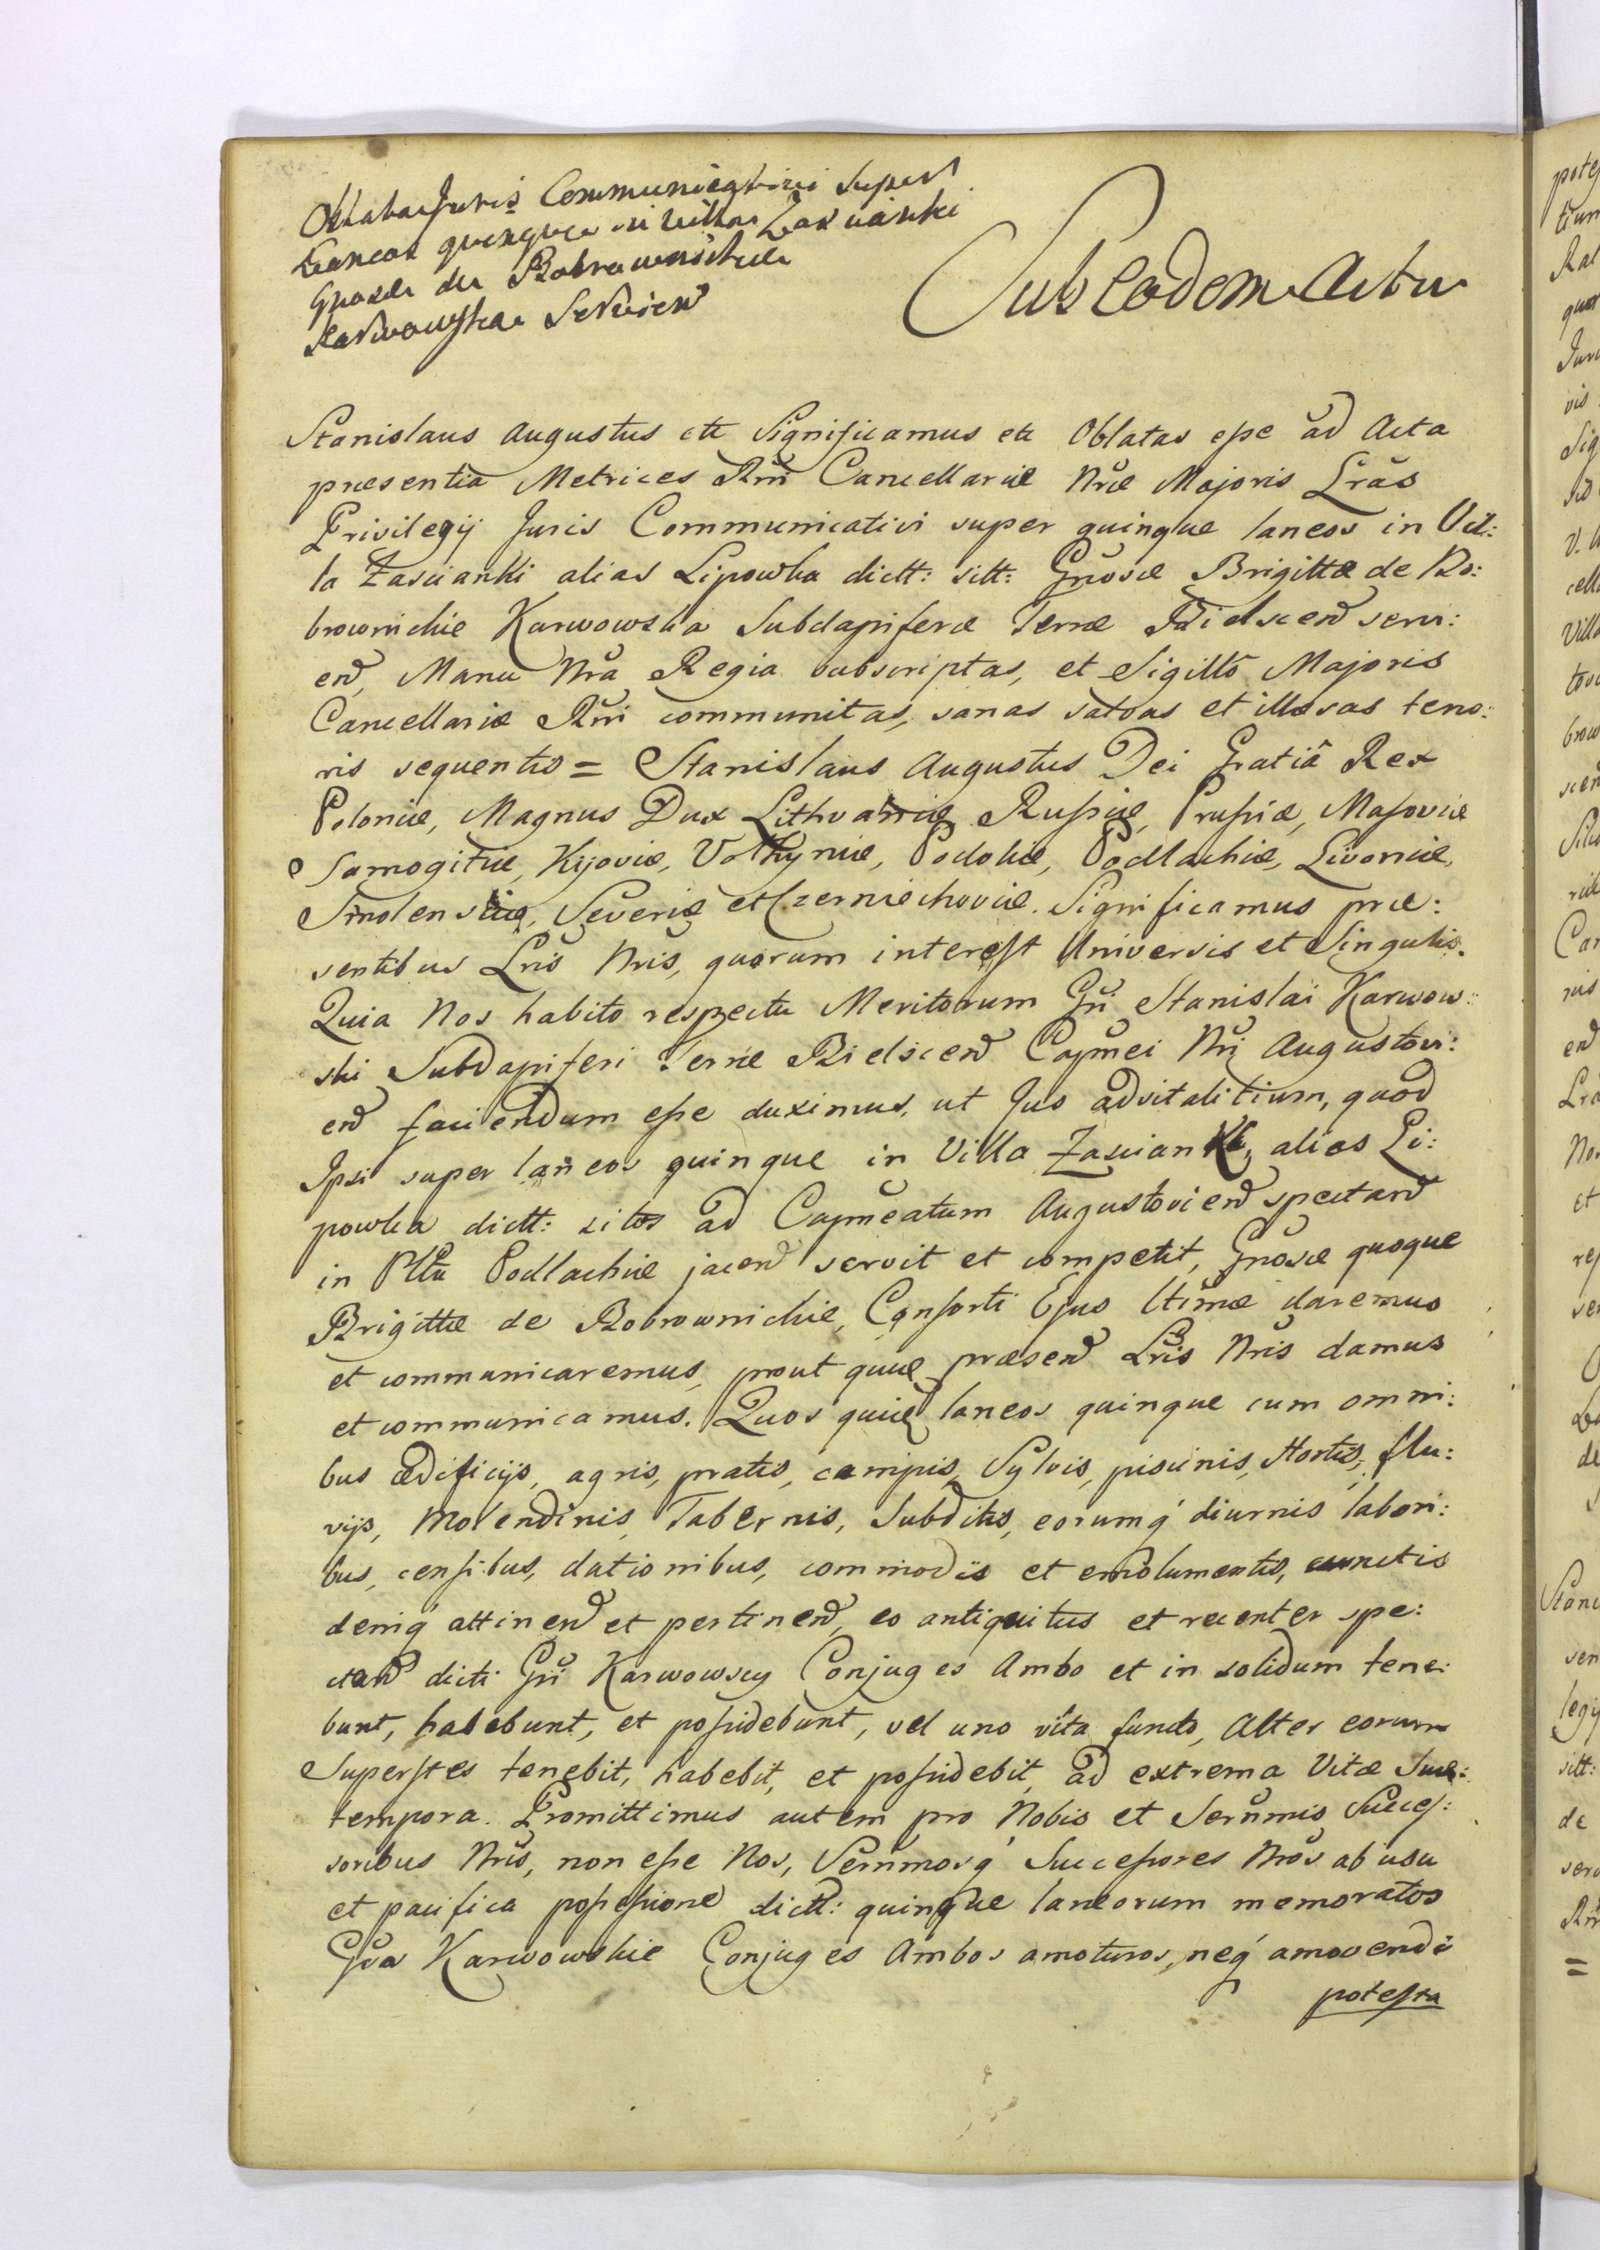 Oblata Juris Communicativi super
Laneos quinque in Villa Zascianki
Gnosæ de Bobrownickie
Karwowska Servien
Sub Eodem Actu
Stanislaus Augustus ett Significamus ett Oblatas esse ad Acta
præsentia Metrices Rni Cancellariæ Nræ Majoris Lras
Privilegij Juris Communicativi super quinque laneos in Vil:
la Zascianki alias Lipowka dictt: sitt: Gnosæ Brigittæ de Bo:
brownickie Karwowska Subdapiferæ Terræ Bielscen servi:
en, Manu Nra Regia subscriptas, et Sigillo Majoris
Cancellariæ Rni communitas, sanas salvas et illæsas teno:
ris sequentis = Stanislaus Augustus Dei Gratiâ Rex
Poloniæ, Magnus Dux Lithvaniæ Russiæ, Prussiæ, Masoviæ
Samogitiæ, Kyoviæ, Volhyniæ, Podoliæ, Podlachiæ, Livoniæ,
Smolensciæ, Severiæ et Czerniechoviæ. Significamus præ:
sentibus Lris Nris, quorum interest Universis et Singulis.
Quia Nos habito respectu Meritorum Gni Stanislai Karwow:
ski Subdapiferi Terræ Bielscen Capnei Nri Augustovi:
en faciendum esse duximus, ut Jus advitalitium, quod
Ipsi super laneos quinque in Villa Zascianki, alias Li:
powka dictt: sitos ad Capneatum Augustovien spectan
in Pltu Podlachiæ jacen servit et competit, Gnosæ quoque
Brigittæ de Bobrownickie, Consorti Ejus Ltimæ daremus
et communicaremus, prout quue præsen Lris Nris damus
et communicamus. Quos quue laneos quinque cum omni:
bus ædificijs, agris, pratis, campis, Sylvis, piscinis, Hortis, flu:
vijs, Molendinis, Tabernis, Subditis, eorumq' diurnis labori:
bus, censibus, dationibus, commodis et emolumentis, cunctis
deniq' attinen et pertinen, eo antiquitus et recenter spe:
ctan dicti Gni Karwowscy Conjuges Ambo et in solidum tene:
bunt, habebunt, et possidebunt, vel uno vita functo, Alter eorum
Superstes tenebit, habebit, et possidebit, ad extrema Vitæ Suæ:
tempora. Promittimus autem pro Nobis et Sernmis Succes:
soribus Nris, non esse Nos, Sernmosq' Successores Nros ab usu
et pacifica possessione dictt: quinque laneorum memoratos
Gsos Karwowskie Conjuges Ambos amoturos, neq' amovendi
potesta